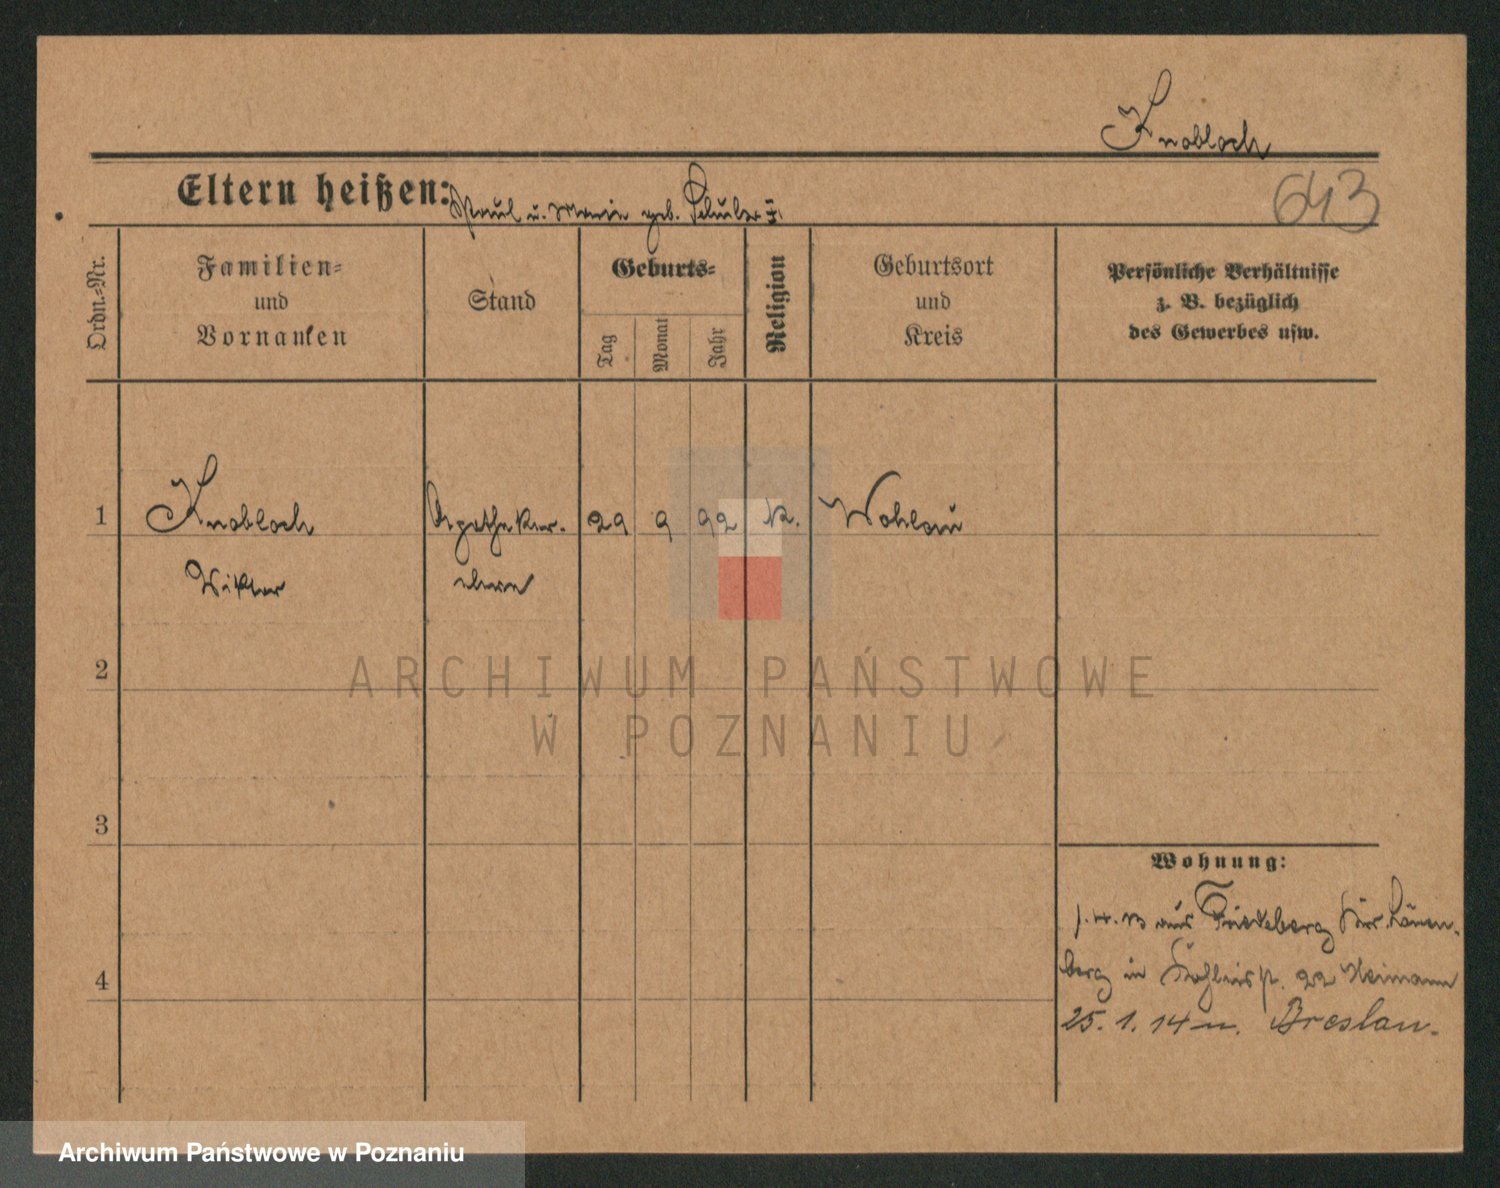 Knobloch
643
Eltern heißen: Paul u. Marie geb. Schulz
Ordn.-Nr.
Familien-
und
Vornamen
Stand
Geburts-
Tag
Monat
Jahr
Religion
Geburtsort
und
Kreis
Persönliche Verhältnisse
z. B. bezüglich
des Gewerbes usw.
1 Knobloch Apotheker- 29 9 92 k. Wohlau
Viktor eleve
2
3
4
Wohnung:
aus Friedeberg Löwen-
berg in 22 Heimann
25. 1. 14 n. Breslau.
ARCHIWUM PAŃSTWOWE
W POZNANIU
Archiwum Państwowe w Poznaniu